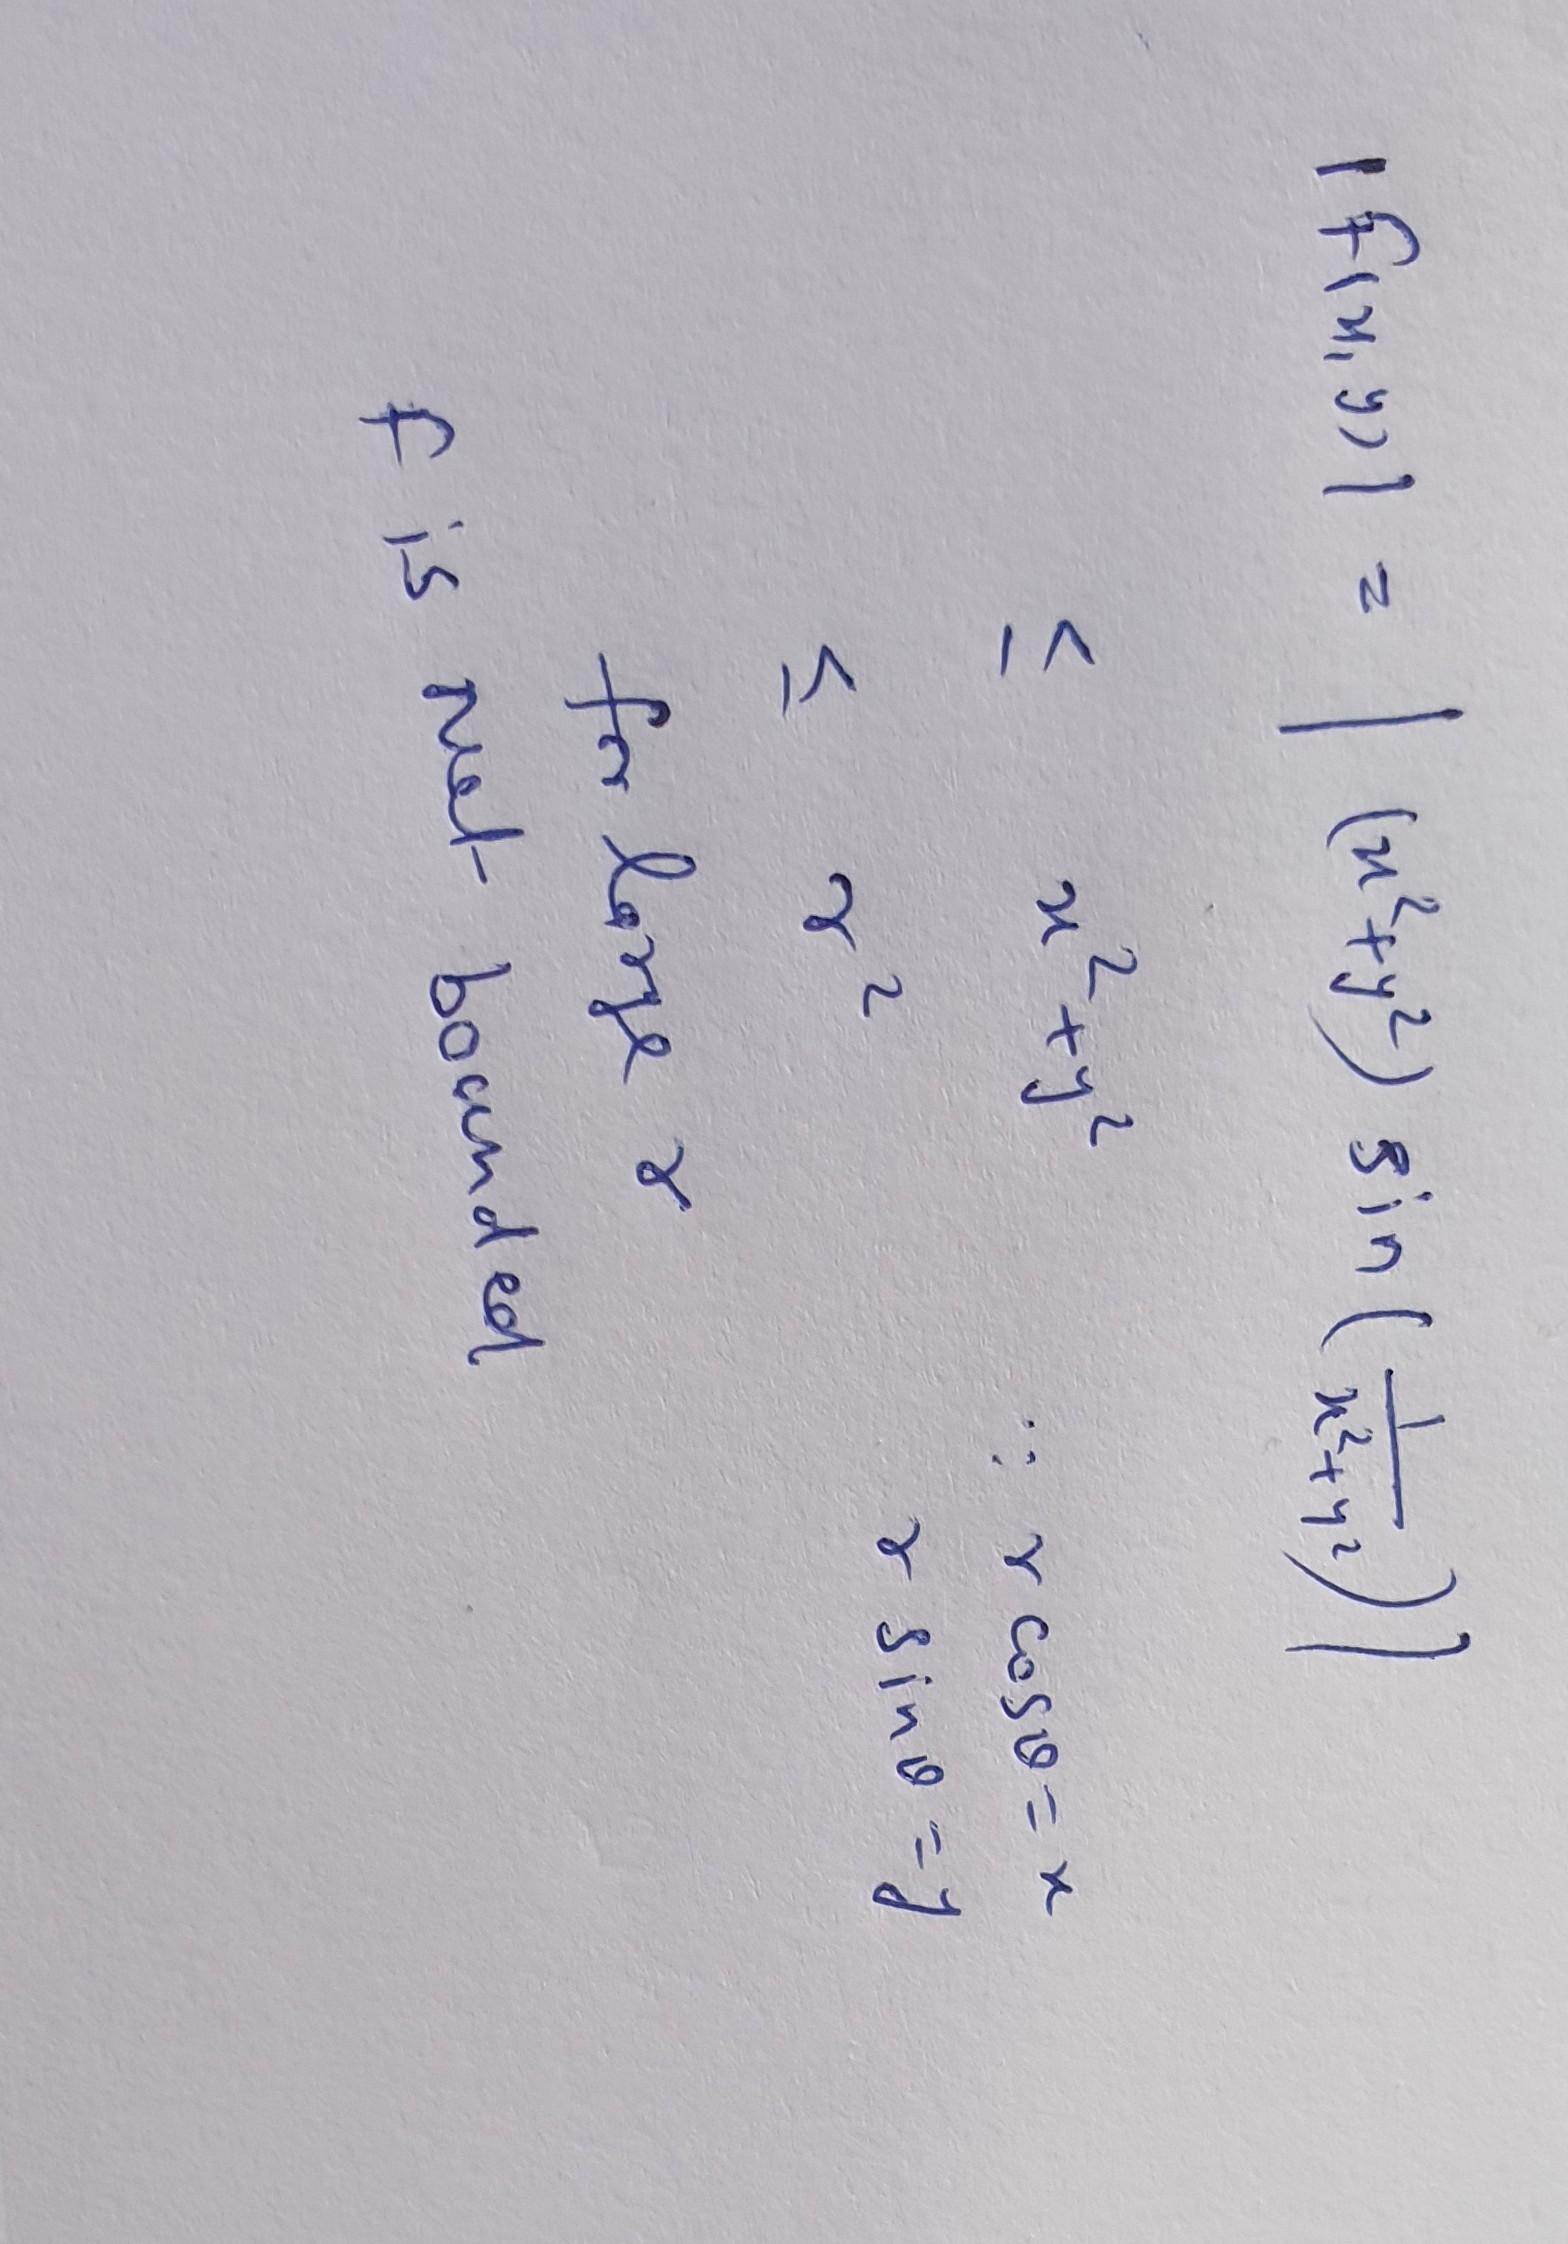 |f(x,y)| = | (x²+y²) sin(1/(x²+y²)) |
≤ x²+y² ∵ r cosθ = x
≤ r² r sinθ = y
for large r
f is not bounded